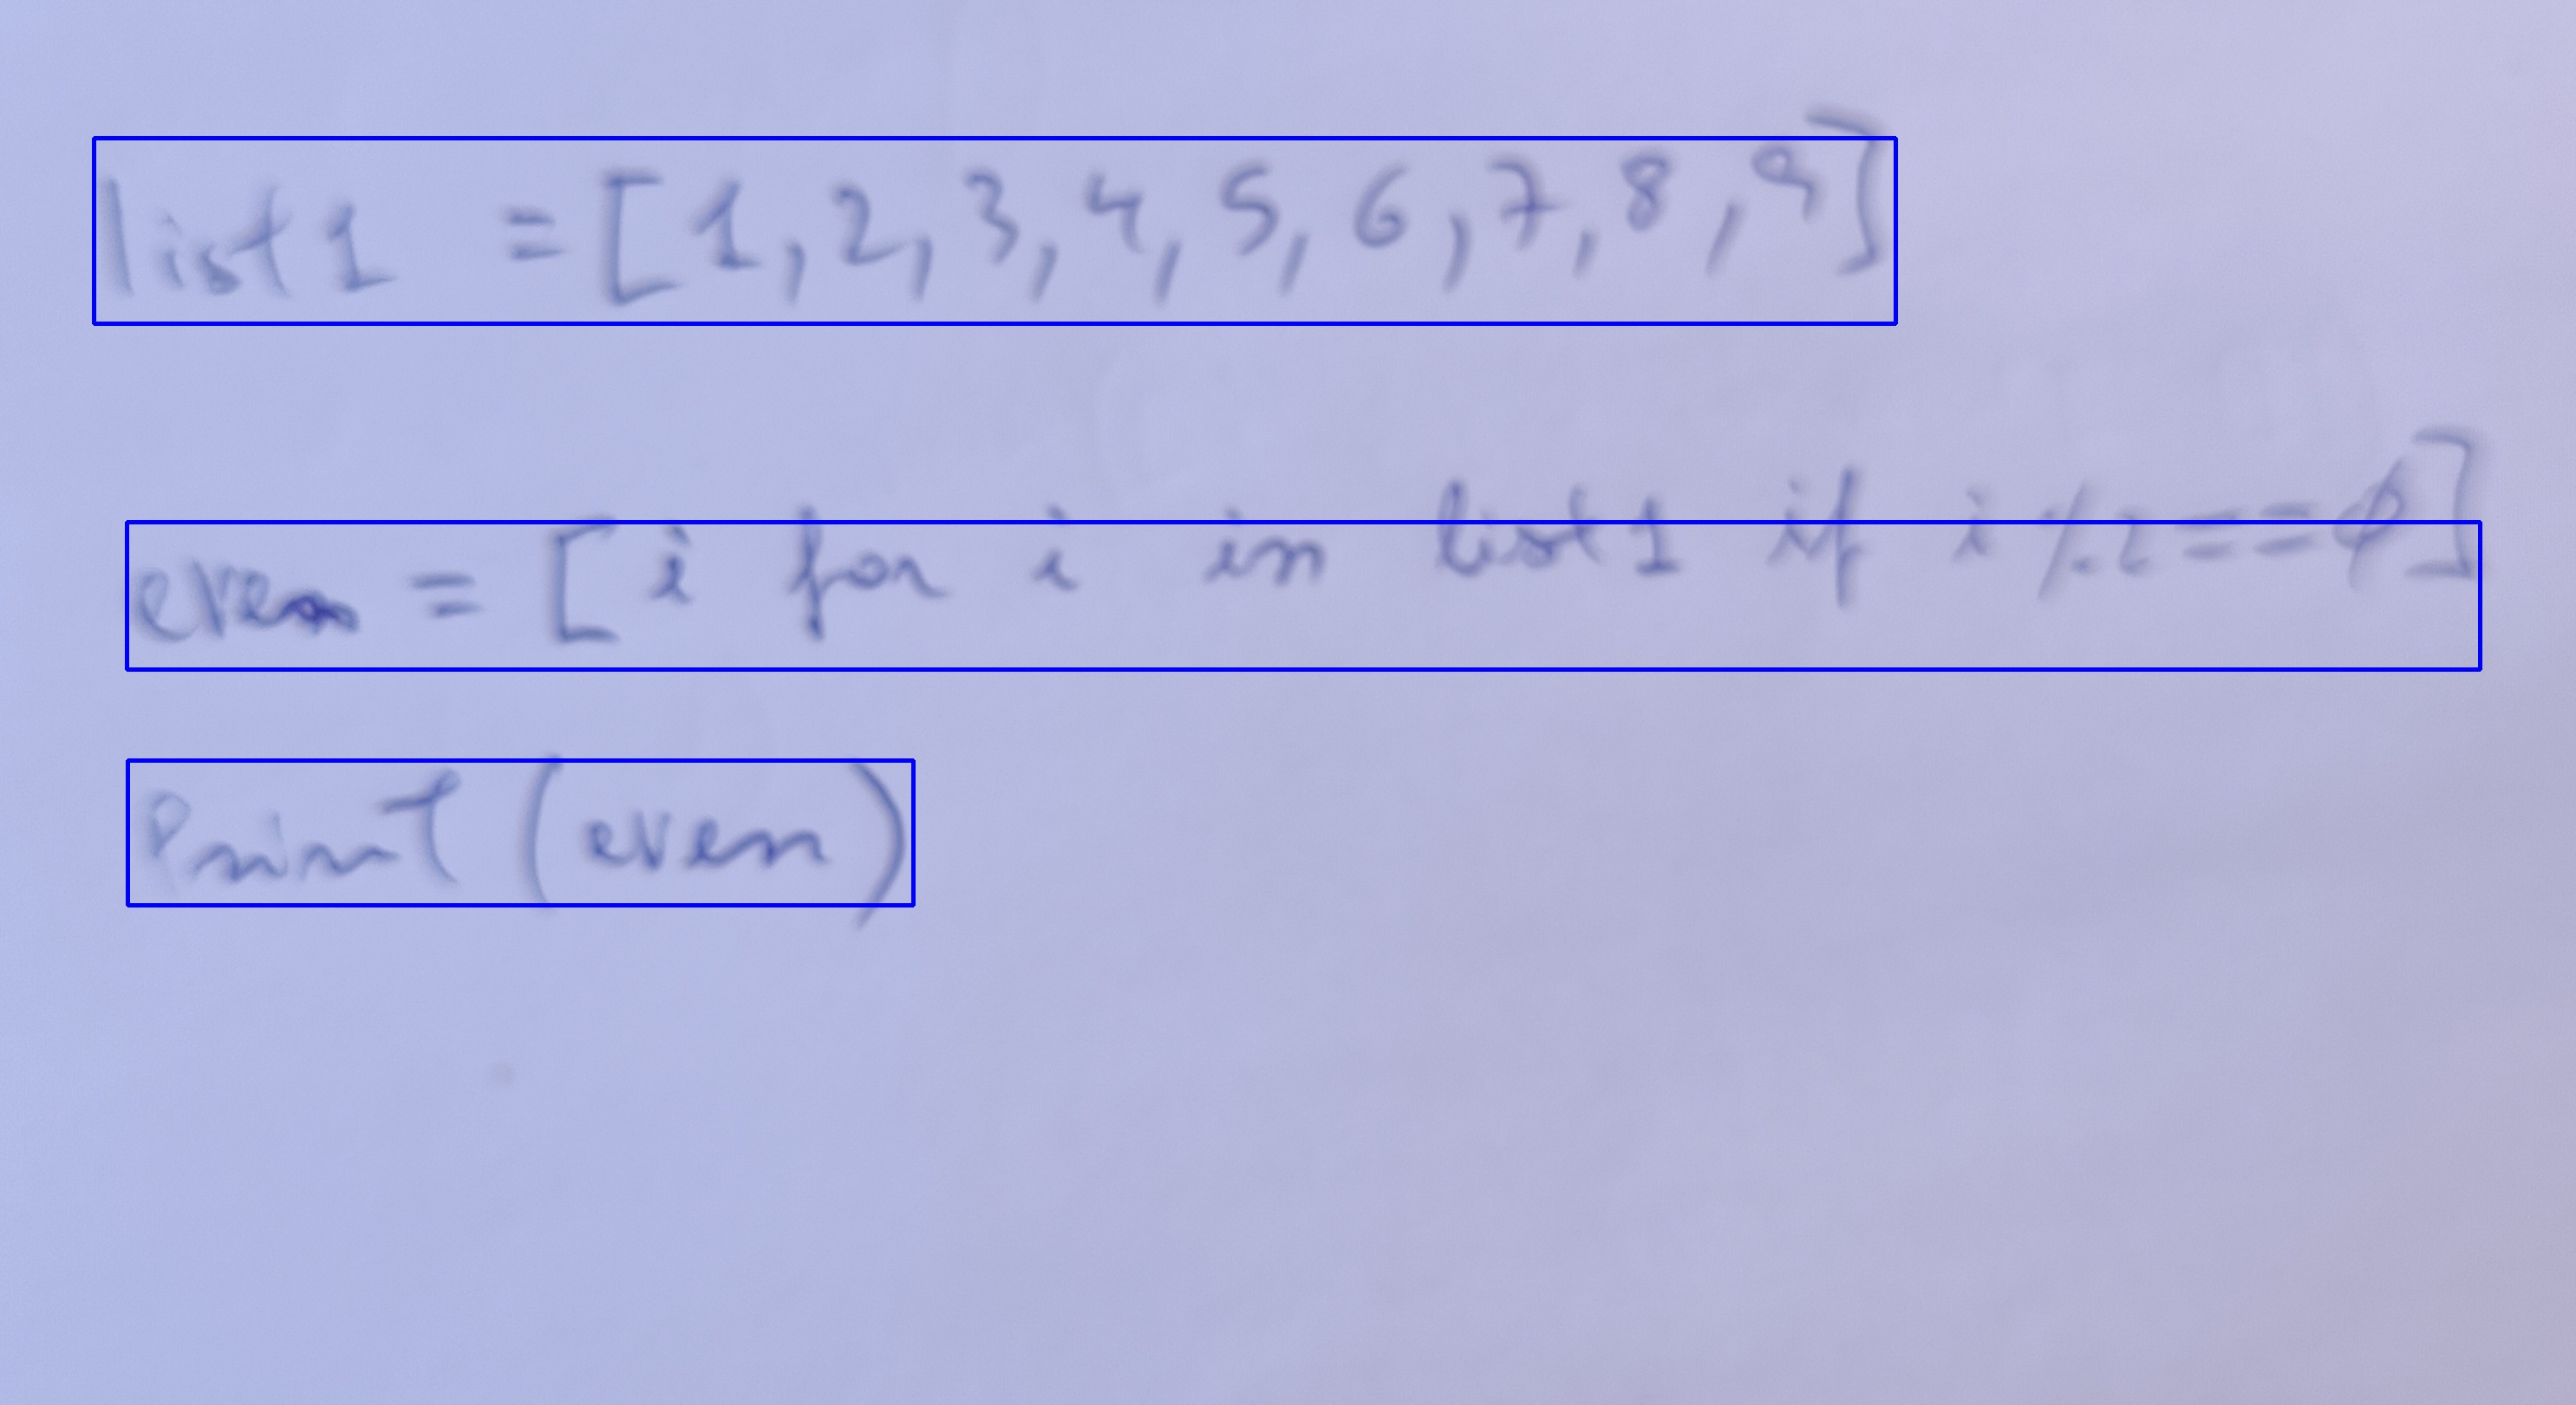 list1 = [1,2,3,4,5,6,7,8,9]
even = [i for i in list1 if i%2==0]
Print (even)